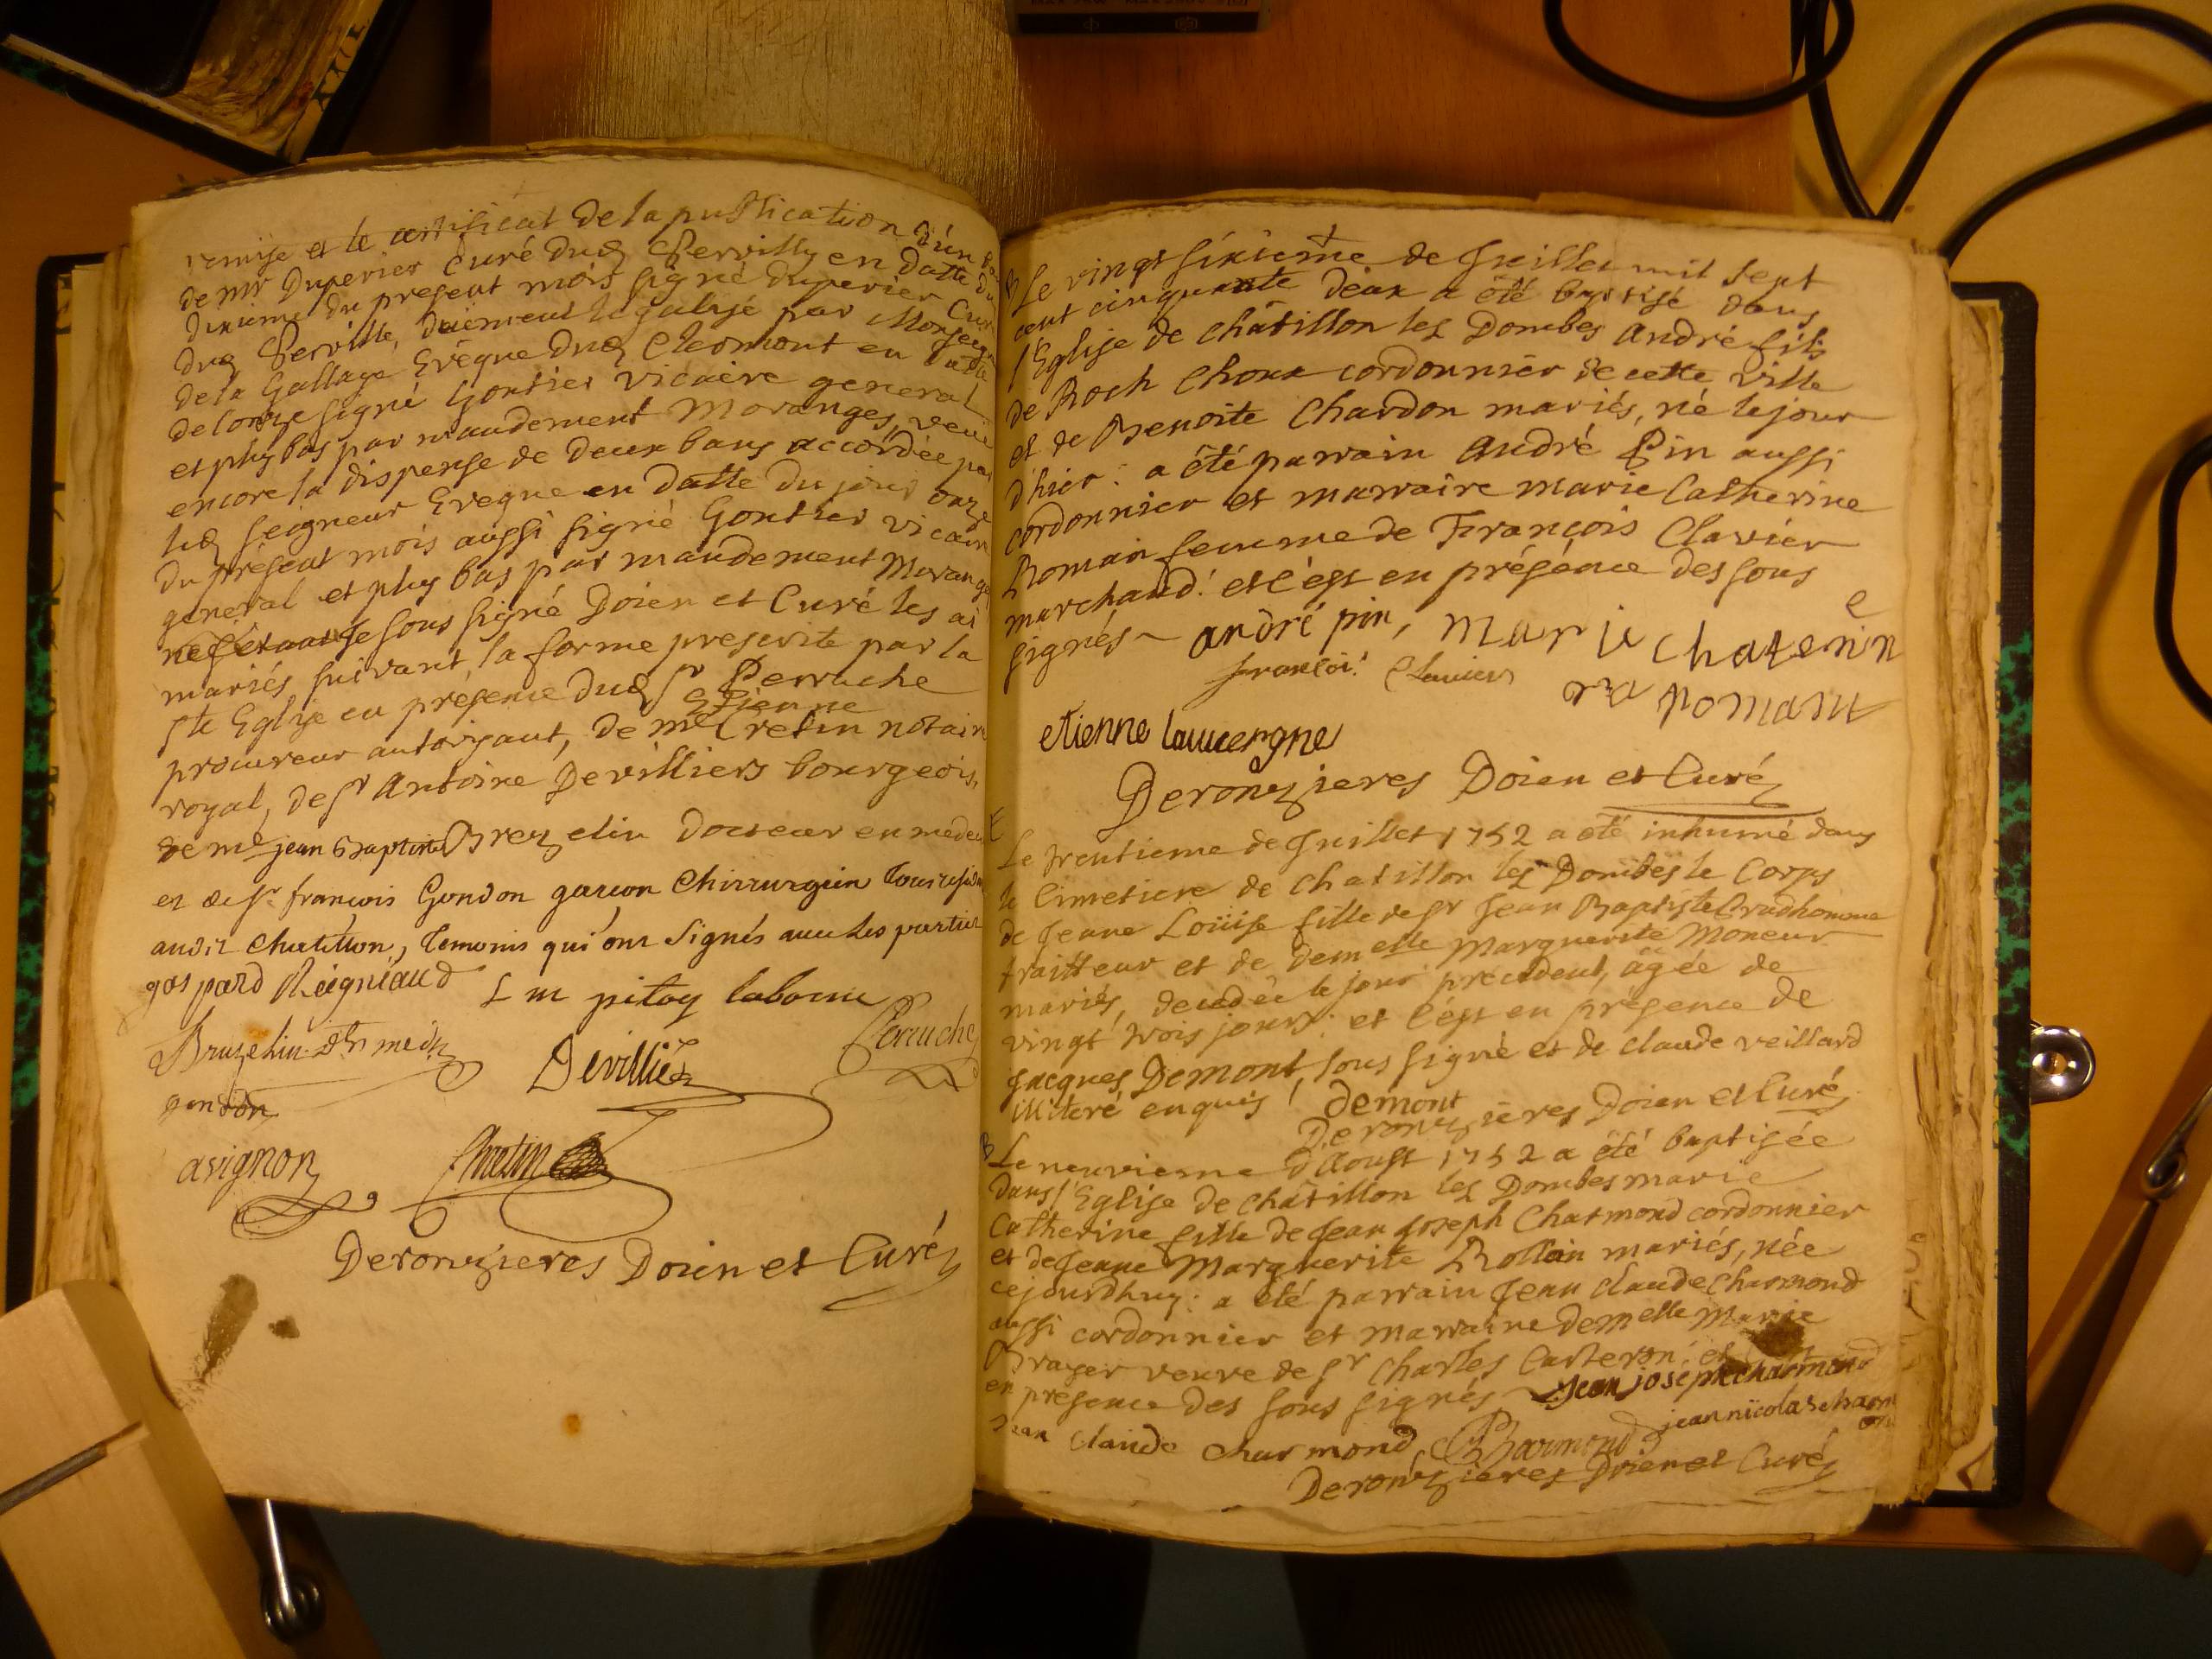 remise et le certificat de la publication d'un
de mr Duperier Curé dud Perville en datte du
dixième du present mois signé duperier Curé
dud Perville, duëment legalisé par Monseign
de la Gallage Evêque dud Cleomont en datte
de lonze signé Gontier vicaire general
et plus bas par mandement Moranges, veüe
encore la dispense de deux bans accordée par
led seigneur Eveque en datte du jour onze
du présent mois aussi signé Gontier vicair
general et plus bas par mandement Morange
je sous signé Doien et Curé les ai
mariés suivant la forme prescrite par la
ste Eglise en présence dud sr Perruche
Etienne
procureur autorisant, de me Cretin notair
royal, de sr Antoine Devilliers bourgeois,
de me jean Baptiste Brezelin docteur en medeci
et de sr françois Gondon garçon Chirrurgien tous resid
audit Chatillon, temoins qui ont signés avec les parties
gaspard Reigniaud L m pitoy
Bruzelin dr medin Devilliers Perruche
gondon
avignon Chretin
Deronzieres Doien et Curé
B Le vingt sixième de Juillet mil sept
cent cinquante deux a été baptisé dans
l'Eglise de Châtillon les Dombes André fils
de Roch Choux cordonnier de cette ville
et de Benoite Chardon mariés, né le jour
d'hier: a été parrain André Pin aussi
cordonnier et marraine marie Catherine
Romain femme de François Clavier
marchand: et c'est en présence des sous
signés andré pin, Marie Chaterin e
françoi Clavier romain
etienne lauvergne
Deronzieres Doien et Curé
E
Le trentieme de Juillet 1752 a été inhumé dans
le Cimetiere de Chatillon les Dombes le Corps
de Jeane Loüise fille de sr Jean Baptiste Prudhomme
traitteur et de demelle Marguerite Moneur
mariés, decedée le jour precedent, âgée de
vingt trois jours: et c'est en présence de
Jacques Demont sous signé et de claude veillard
illiteré enquis demont
Deronzieres Doien et Curé
B Le neuvieme d'Aoust 1752 a été baptisée
dans l'Eglise de Châtillon les Dombes marie
Catherine fille de Jean Joseph Charmond cordonnier
et de Jeane Marguerite Rollin mariés, née
cejourdhuy: a été parrain Jean Claude Charmond
aussi cordonnier et marraine demelle Marie
Brayer veuve de sr Charles Carteron: et
en présence des sous signés Jean joseph charmond
jean Claude charmond Charmond jean nicolas charm
on
Deronzieres Doien et Curé